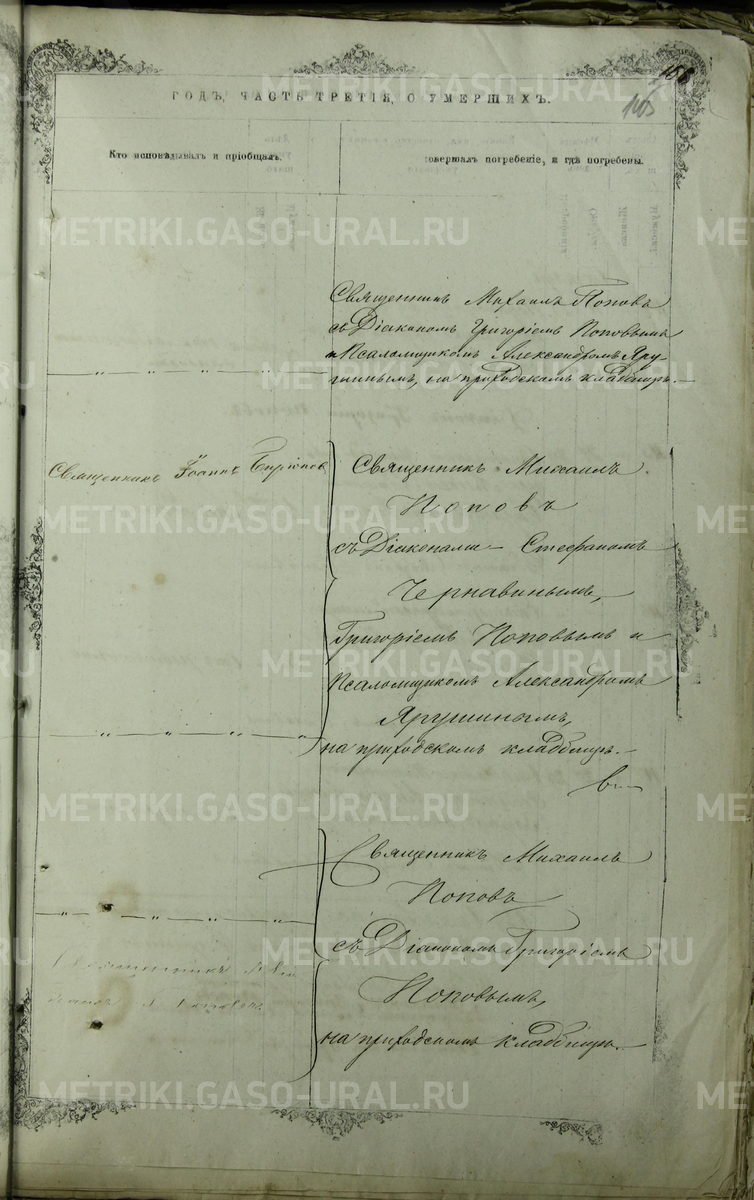 156
103
ГОДЪ, ЧАСТЬ ТРЕТІЯ, О УМЕРШИХЪ.
Кто исповѣдывалъ и пріобщалъ.
совершалъ погребеніе, и гдѣ погребены.
Священникъ Михаилъ Поповъ
съ Діакономъ Григоріемъ Поповымъ
и Псаломщикомъ Александромъ Яру-
шинымъ, на приходскомъ кладбищѣ.
Священникъ Іоаннъ
Священникъ Михаилъ
Поповъ
съ Діаконами Стефаномъ
Чернавинымъ,
Григоріемъ Поповымъ и
Псаломщикомъ Александромъ
Ярушинымъ,
на приходскомъ кладбищѣ.
Священникъ Михаилъ
Поповъ
съ Діакономъ Григоріемъ
Поповымъ,
на приходскомъ кладбищѣ.
Священникъ
METRIKI.GASO-URAL.RU